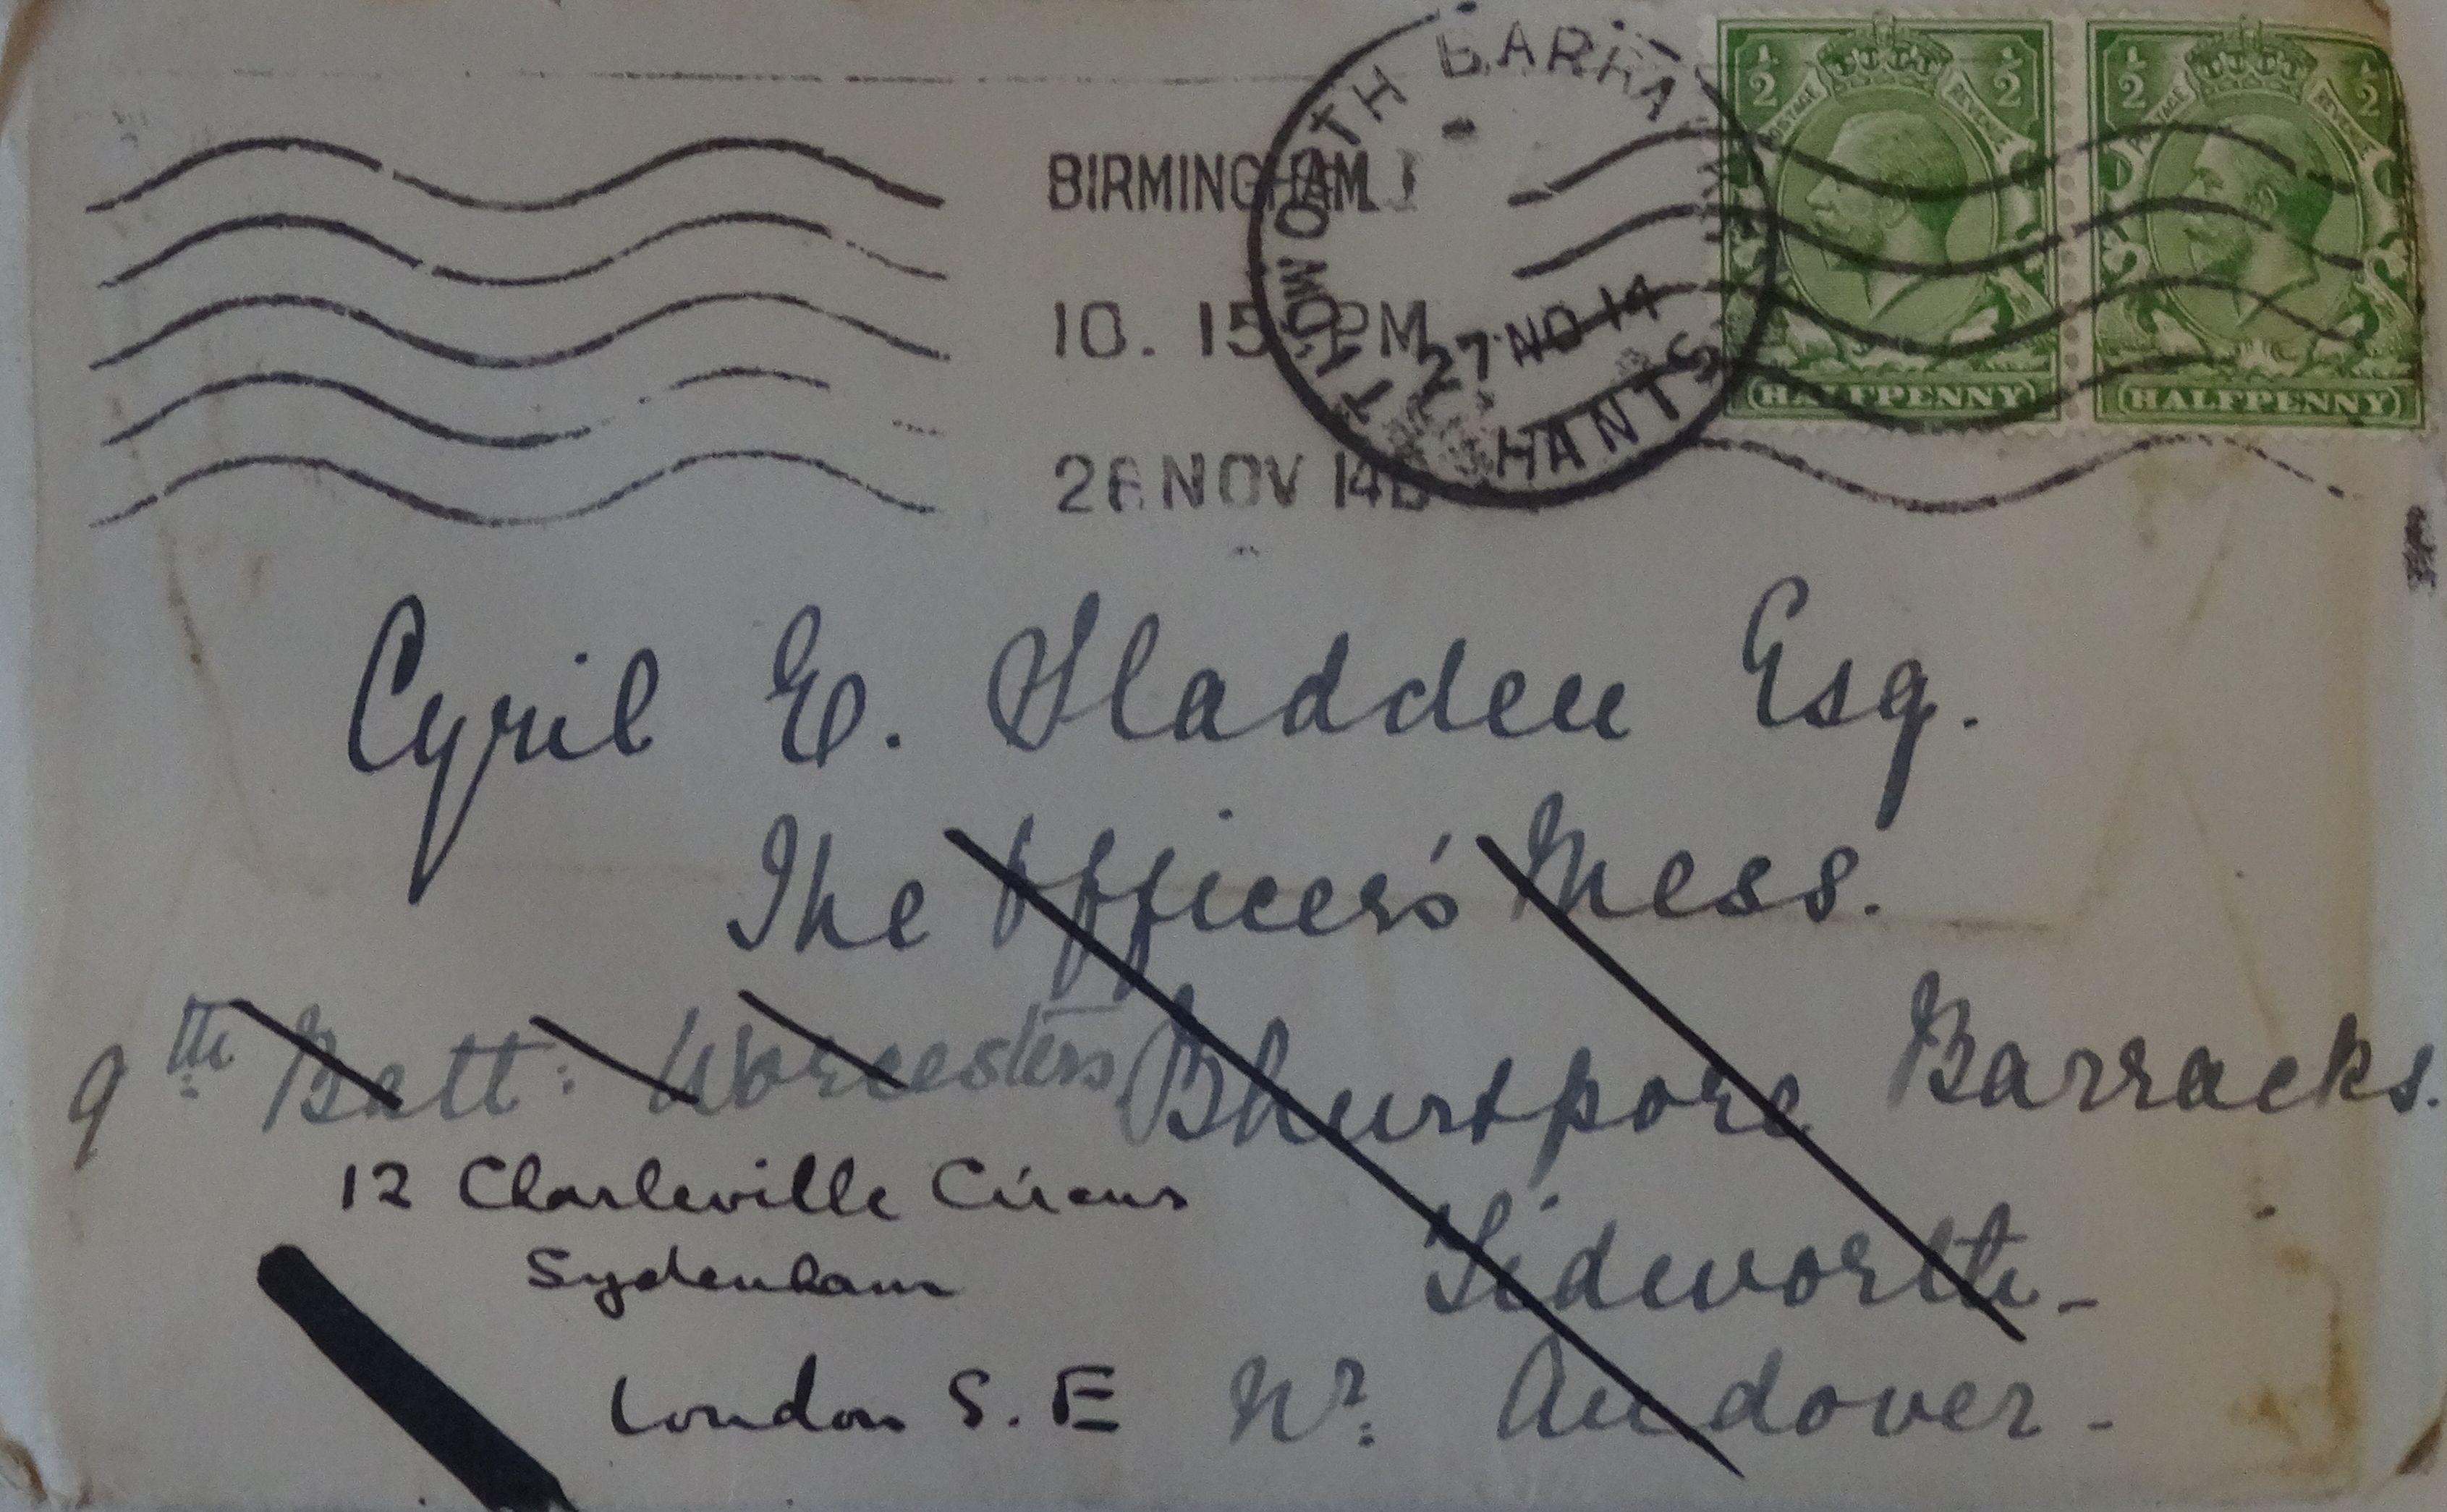 BIRMINGHAM
10. 15 PM
26 NOV 14
TIDWORTH BARRA
27 NO 14
HANTS
1/2 POSTAGE REVENUE 1/2
HALFPENNY
1/2 POSTAGE REVENUE 1/2
HALFPENNY
Cyril E. Sladden Esq.
The Officer's Mess.
9th Batt: Worcesters Bhurtpore Barracks.
Tidworth -
Nr: Andover -
12 Charleville Circus
Sydenham
London S.E